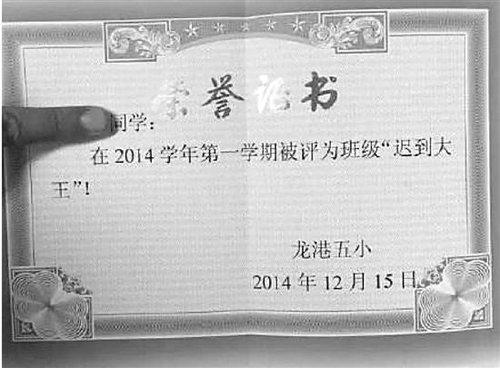 荣誉证书
同学：
在2014学年第一学期被评为班级“迟到大
王”！
龙港五小
2014年12月15日